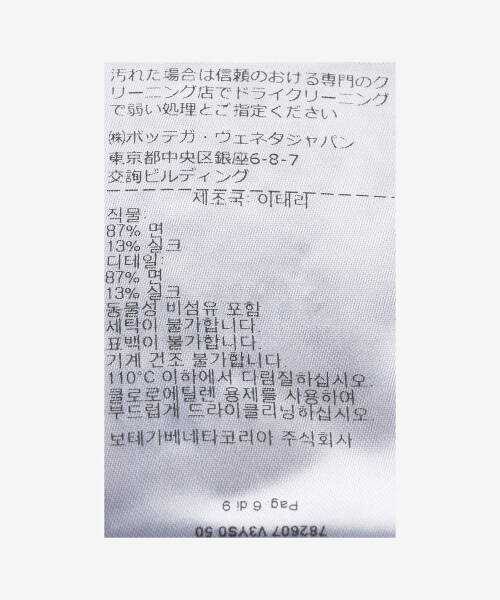 汚れた場合は信頼のおける専門のク
リーニング店でドライクリーニング
で弱い処理とご指定ください
㈱ボッテガ・ヴェネタジャパン
東京都中央区銀座6-8-7
交詢ビルディング
제조국: 이태리
직물:
87% 면
13% 실크
디테일:
87% 면
13% 실크
동물성 비섬유 포함
세탁이 불가합니다.
표백이 불가합니다.
기계 건조 불가합니다.
110°C 이하에서 다림질하십시오.
클로로에틸렌 용제를 사용하여
부드럽게 드라이클리닝하십시오.
보테가베네타코리아 주식회사
Pag. 6 di 9
782607 V3YS0 50